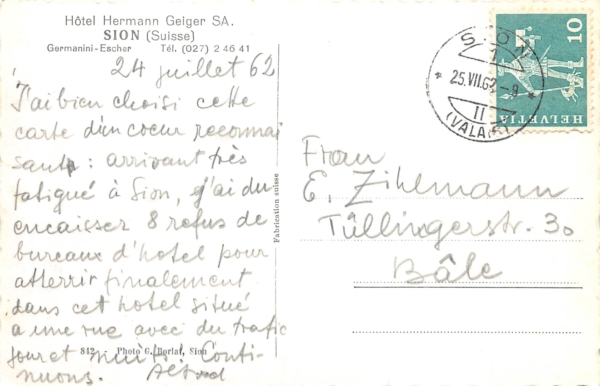 Hôtel Hermann Geiger SA.
SION (Suisse)
Germanini-Escher Tél. (027) 2 46 41
24 juillet 62
J'ai bien choisi cette
carte d'un coeur reconnai
sant : arrivant très
fatigué à Sion, j'ai du
encaisser 8 refus de
bureaux d'hotel pour
atterrir finalement
dans cet hotel situé
a une rue avec du trafic
jour et nuits. Conti-
nuons.
842 Photo G. Borlaz, Sion
Fabrication suisse
SION
1
25.VII.62
II
(VALAIS)
10
HELVETIA
Frau
E. Zihlmann
Tüllingerstr. 30
Bâle